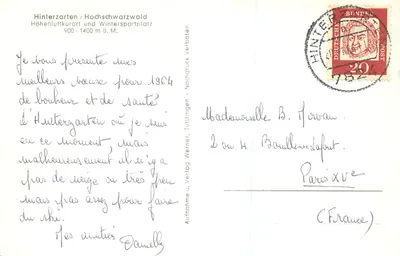 Hinterzarten / Hochschwarzwald
Höhenluftkurort und Wintersportplatz
900 - 1400 m ü. M.
Je vous présente mes
meilleurs vœux pour 1964
de bonheur et de santé
d'Hinterzarten où je suis
en ce moment, mais
malheureusement il n'y a
pas de neige ou très peu
mais pas assez pour faire
du ski.
Mes amitiés
Aufnahme u. Verlag Werner, Tuttlingen - Nachdruck verboten
HINTERZARTEN
DEUTSCHE BUNDESPOST
20
Mademoiselle B. Morvan
2 ou 4
Paris XVe
(France)